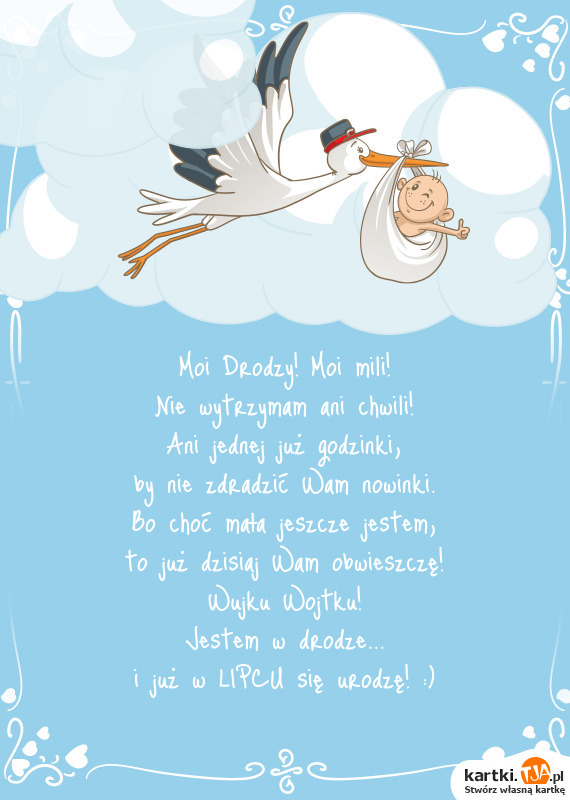 Moi Drodzy! Moi mili!
Nie wytrzymam ani chwili!
Ani jednej już godzinki,
by nie zdradzić Wam nowinki.
Bo choć mała jeszcze jestem,
to już dzisiaj Wam obwieszczę!
Wujku Wojtku!
Jestem w drodze...
i już w LIPCU się urodzę! :)
kartki.TJA.pl
Stwórz własną kartkę